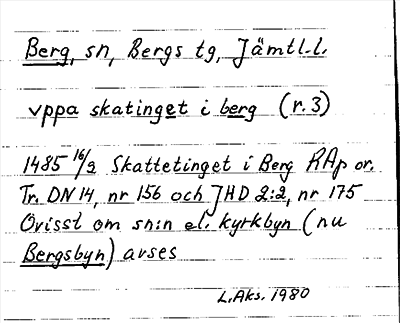 Berg, sn, Bergs tg, Jämtl.l.
vppa skatinget i berg (r.3)
1485 16/2 Skattetinget i Berg RAp or.
Tr. DN 14, nr 156 och JHD 2:2, nr 175
Ovisst om sn:n el. kyrkbyn (nu
Bergsbyn) avses
L.Aks. 1980